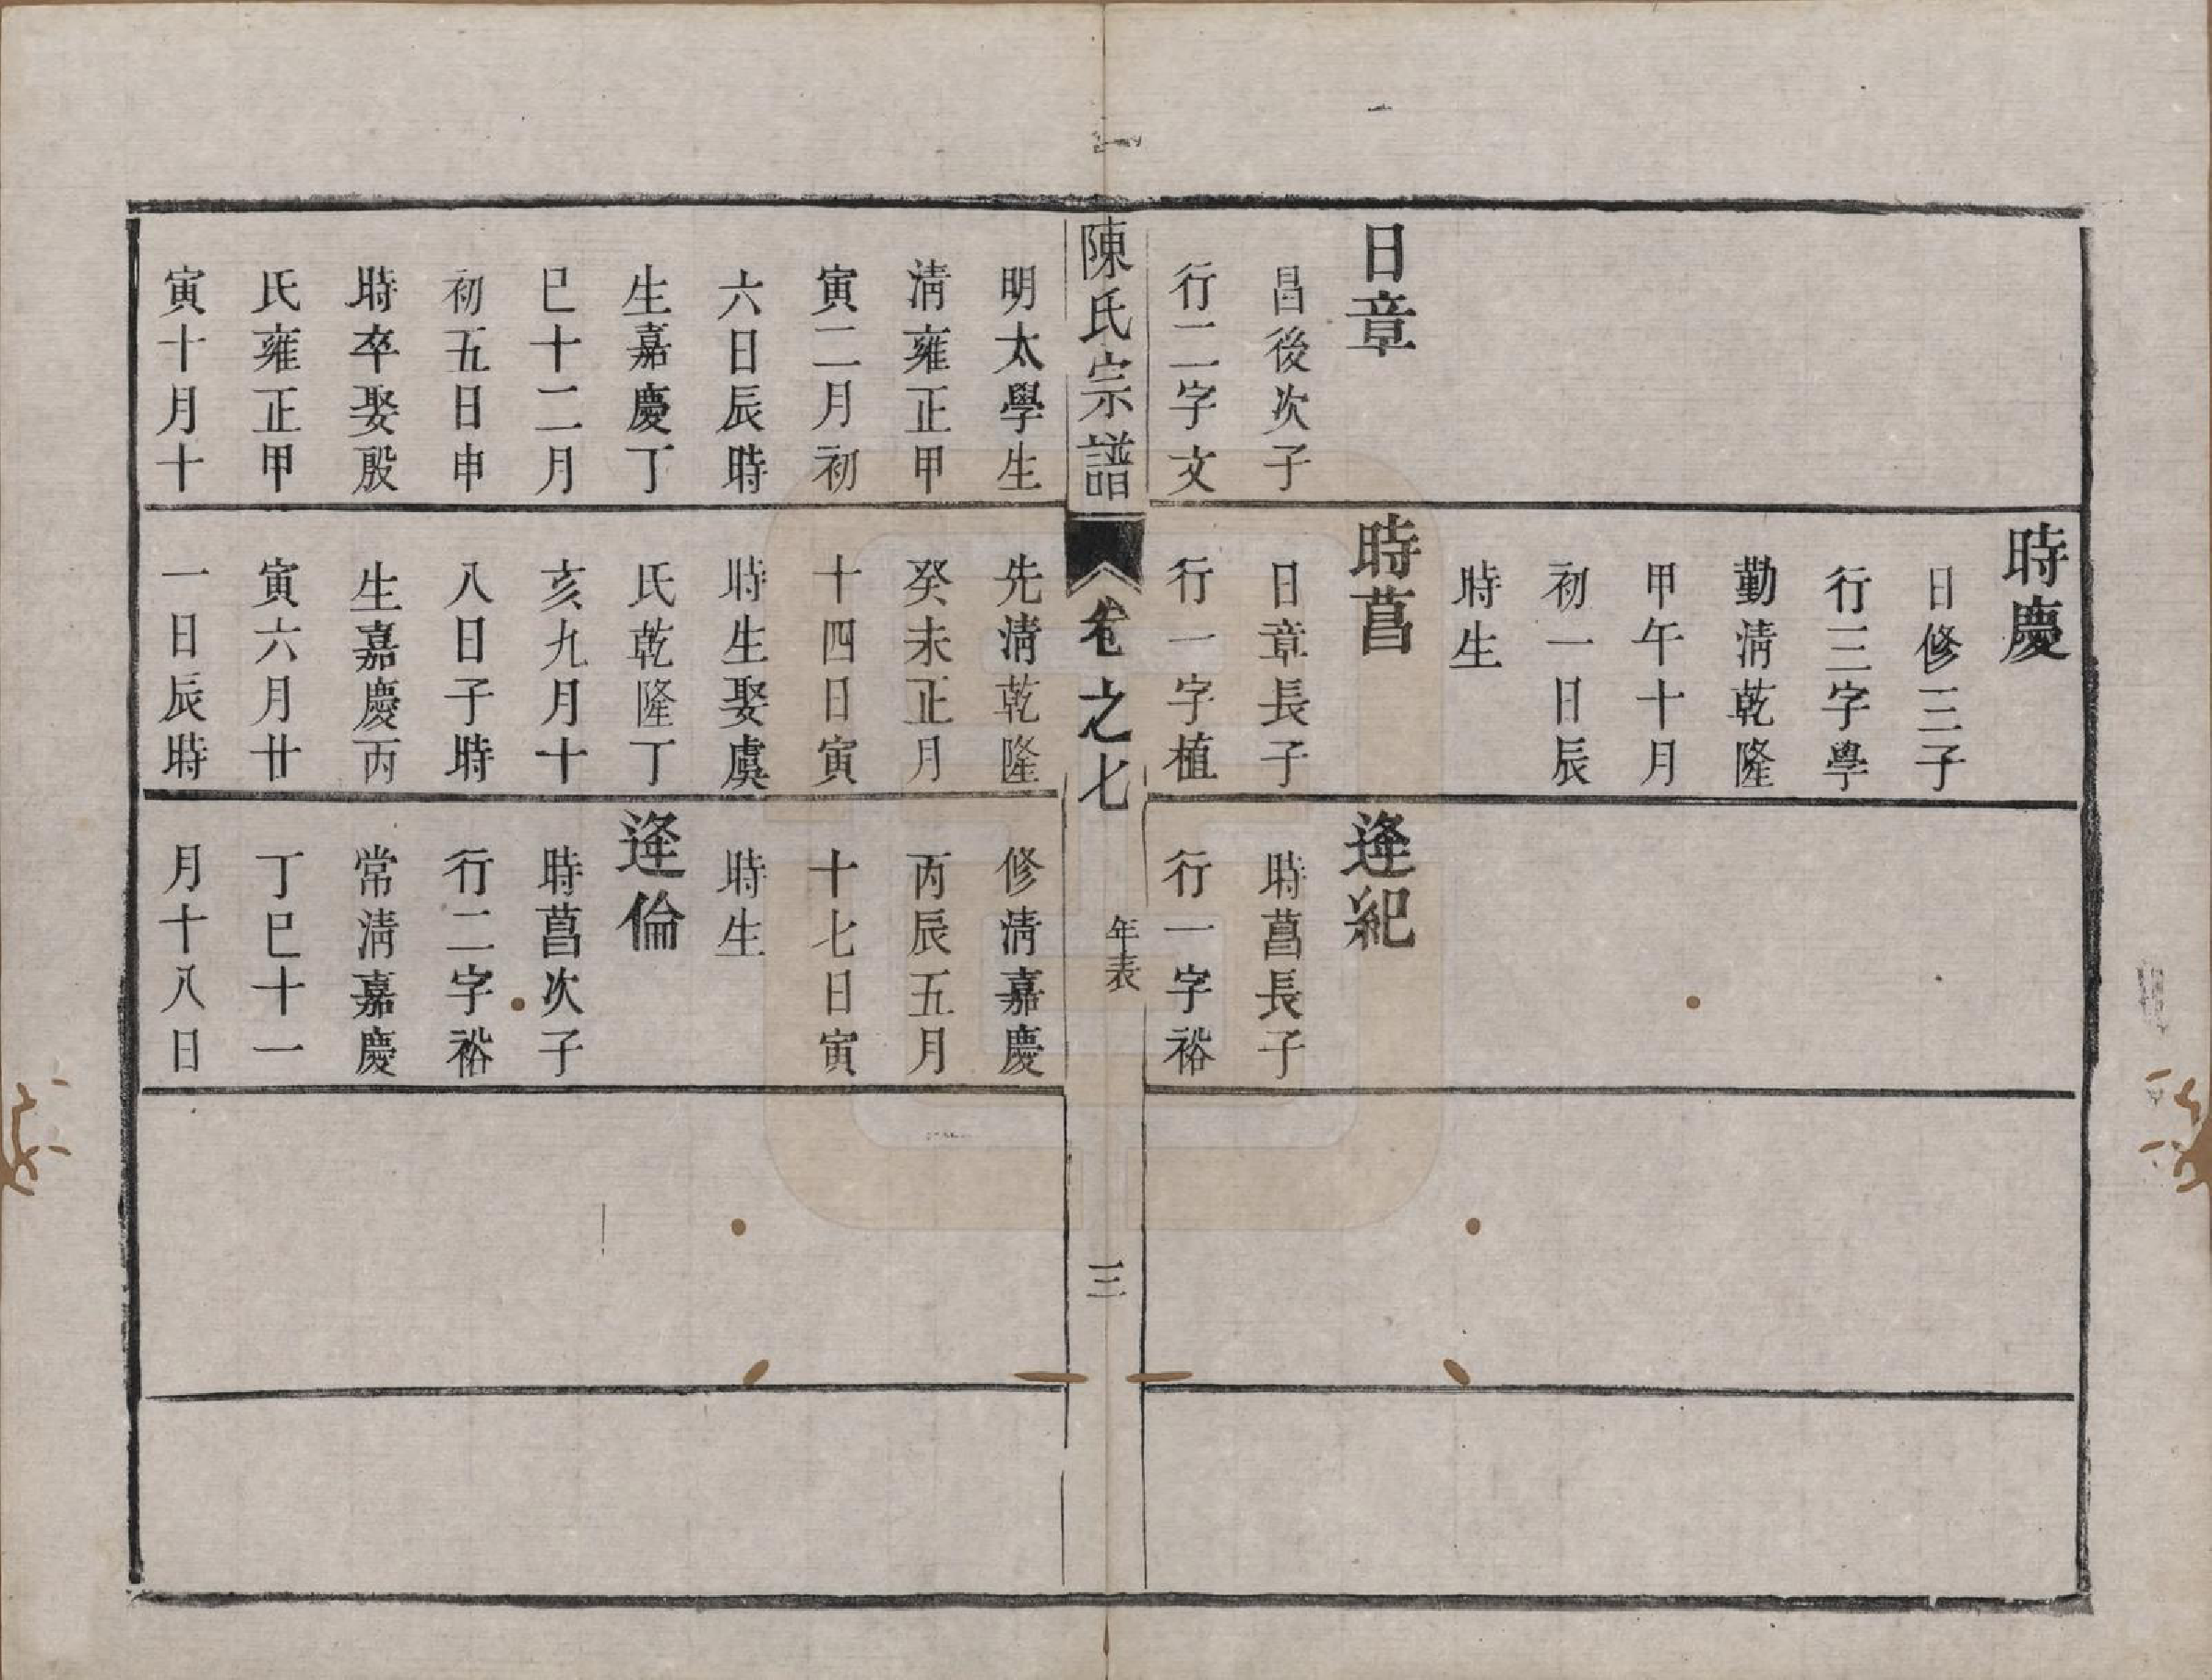 日章
昌後次子
行二字文
時慶
日修三子
行三字學
勤淸乾隆
甲午十月
初一日辰
時生
時菖
日章長子
行一字植
逄紀
時菖長子
行一字裕
陳氏宗譜
卷之七
年表
三
明太學生
淸雍正甲
寅二月初
六日辰時
生嘉慶丁
巳十二月
初五日申
時卒娶殷
氏雍正甲
寅十月十
先淸乾隆
癸未正月
十四日寅
時生娶虞
氏乾隆丁
亥九月十
八日子時
生嘉慶丙
寅六月廿
一日辰時
修淸嘉慶
丙辰五月
十七日寅
時生
逄倫
時菖次子
行二字裕
常淸嘉慶
丁巳十一
月十八日